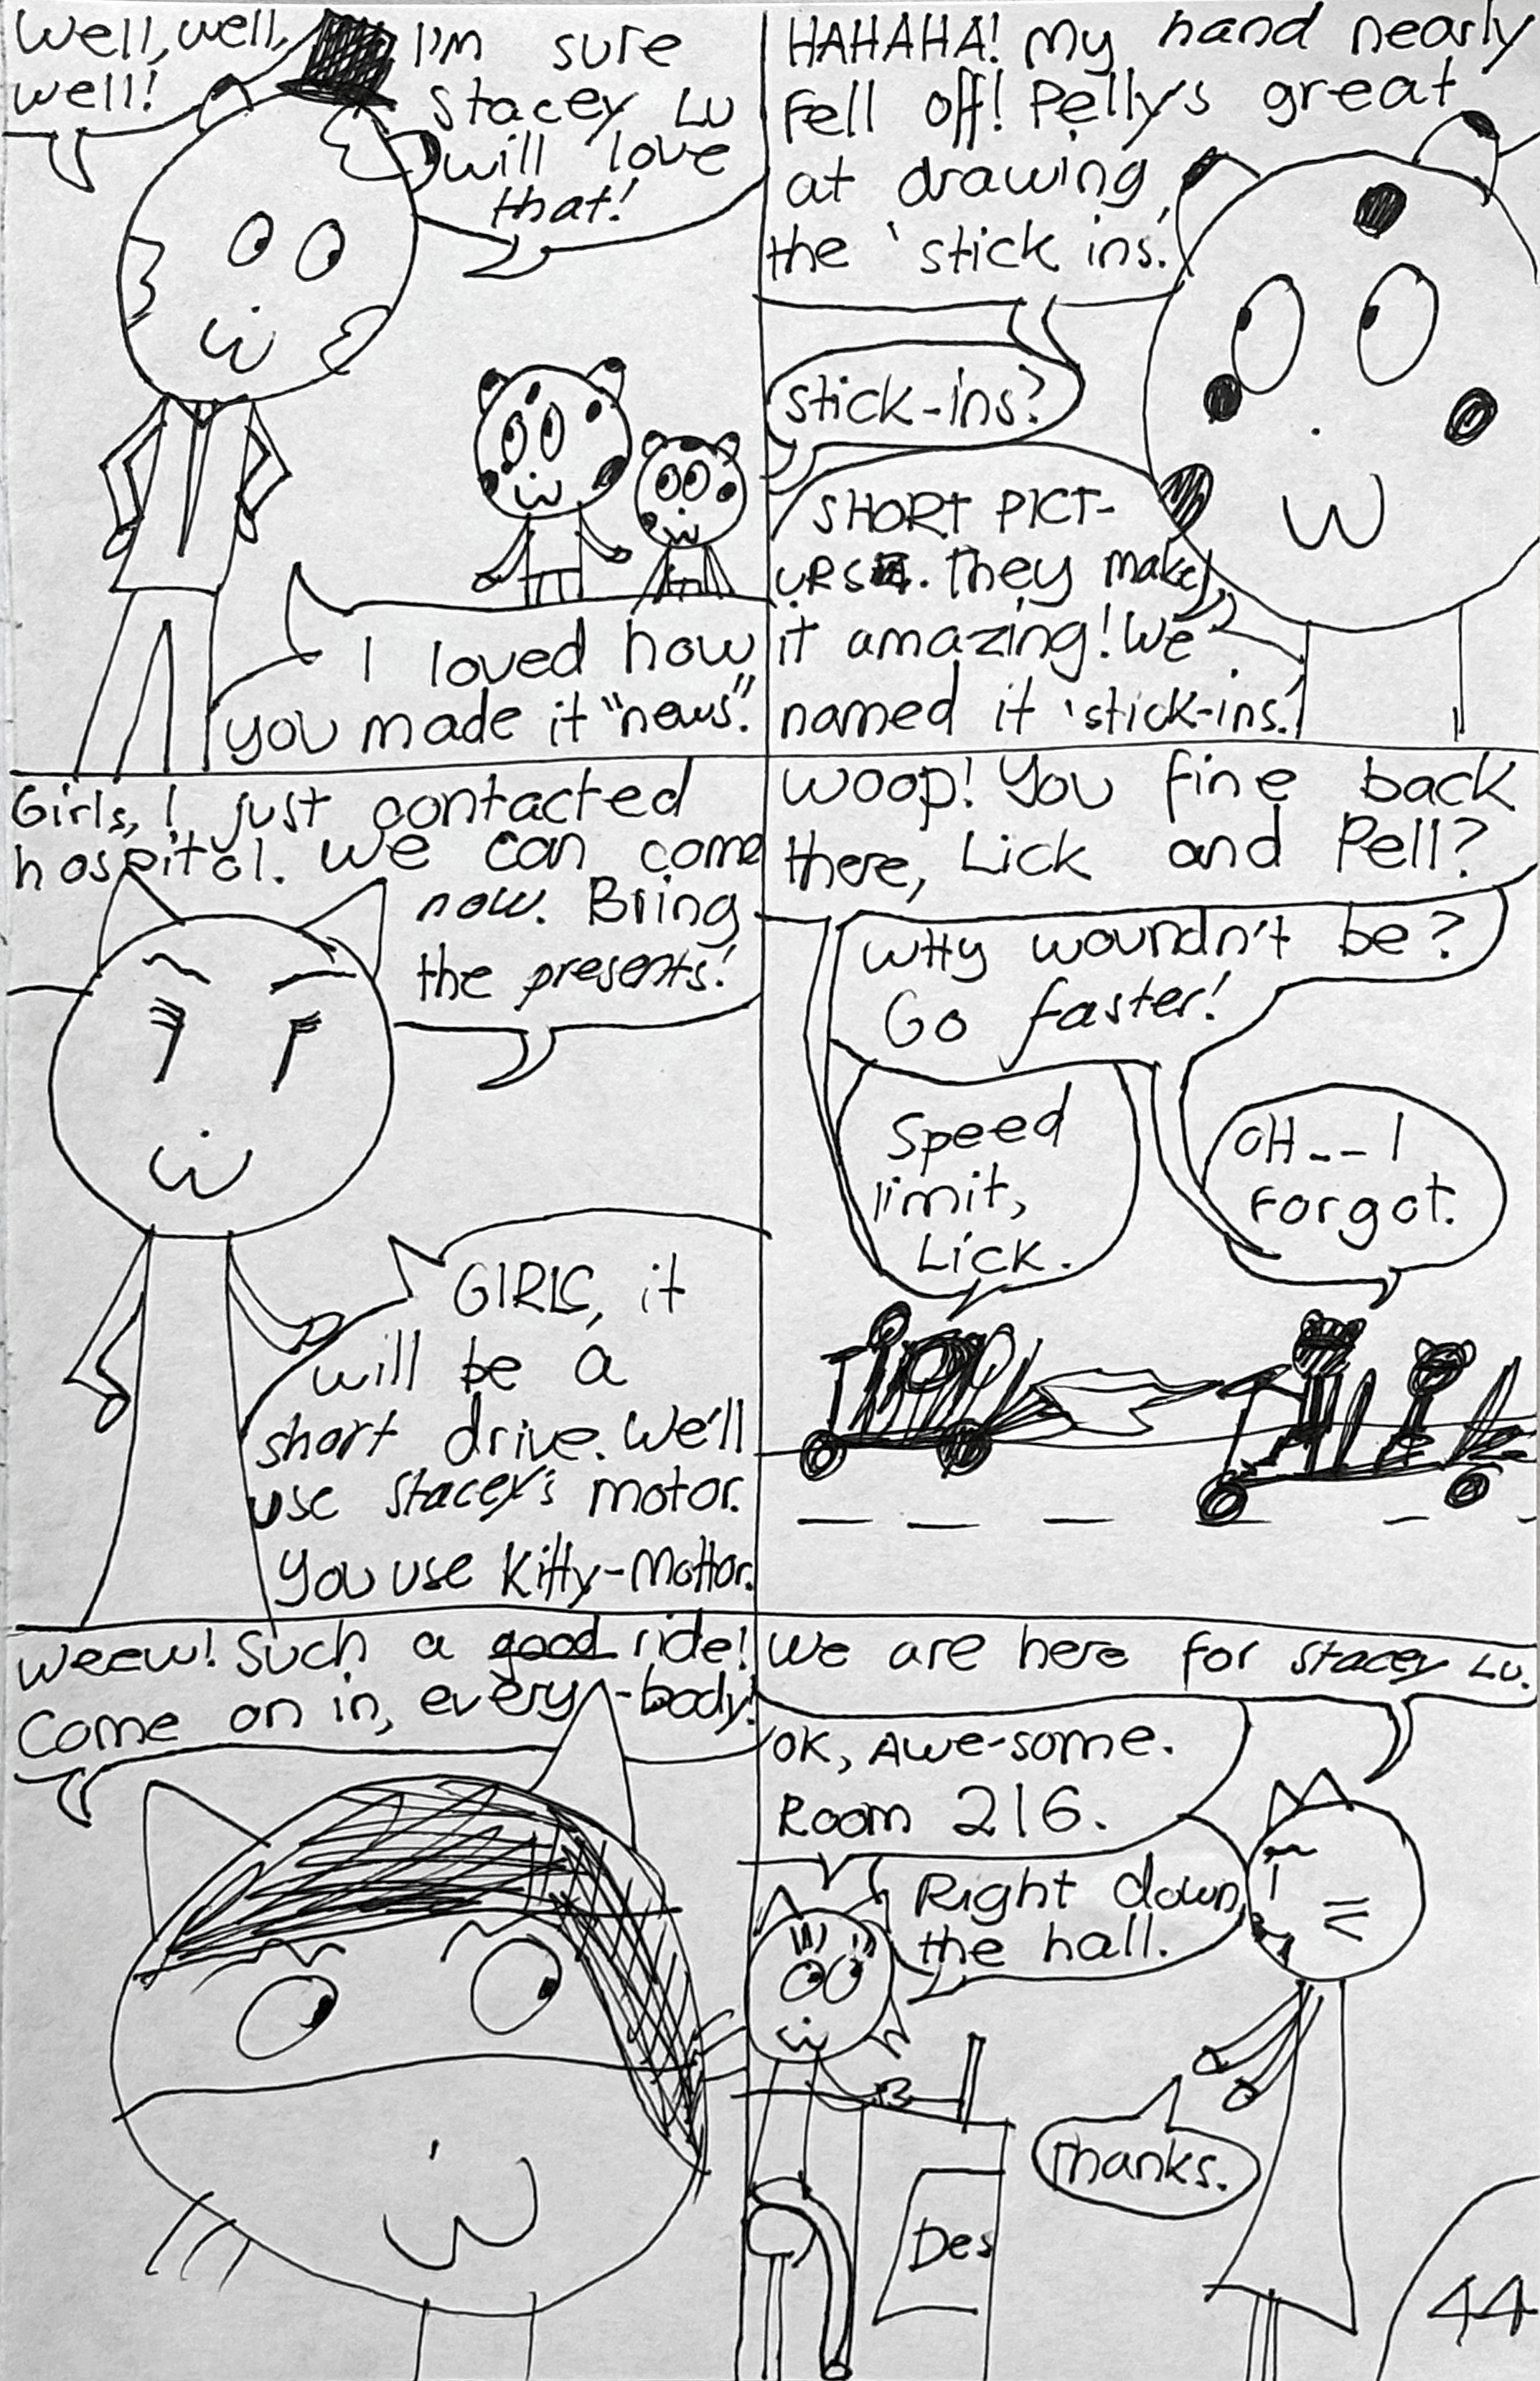 Well, well,
well!
I'm sure
Stacey LU
will love
that!
I loved how
you made it "news".
HAHAHA! My hand nearly
Fell off! Pelly's great
at drawing
the 'stick ins.'
Stick-ins?
SHORT PICT-
URS. They make
it amazing! We
named it 'stick-ins.'
Girls, I just contacted
hospital. We can come
now. Bring
the presents!
GIRLS, it
will be a
short drive. We'll
use Stacey's motor.
You use Kitty-Mottor.
Woop! You fine back
there, Lick and Pell?
WHy woundn't be?
Go faster!
Speed
limit,
Lick.
OH -- I
Forgot.
Weew! Such a good ride!
Come on in, every-body!
We are here for Stacey LU.
OK, Awe-some.
Room 216.
Right down
the hall.
Thanks.
Des
44